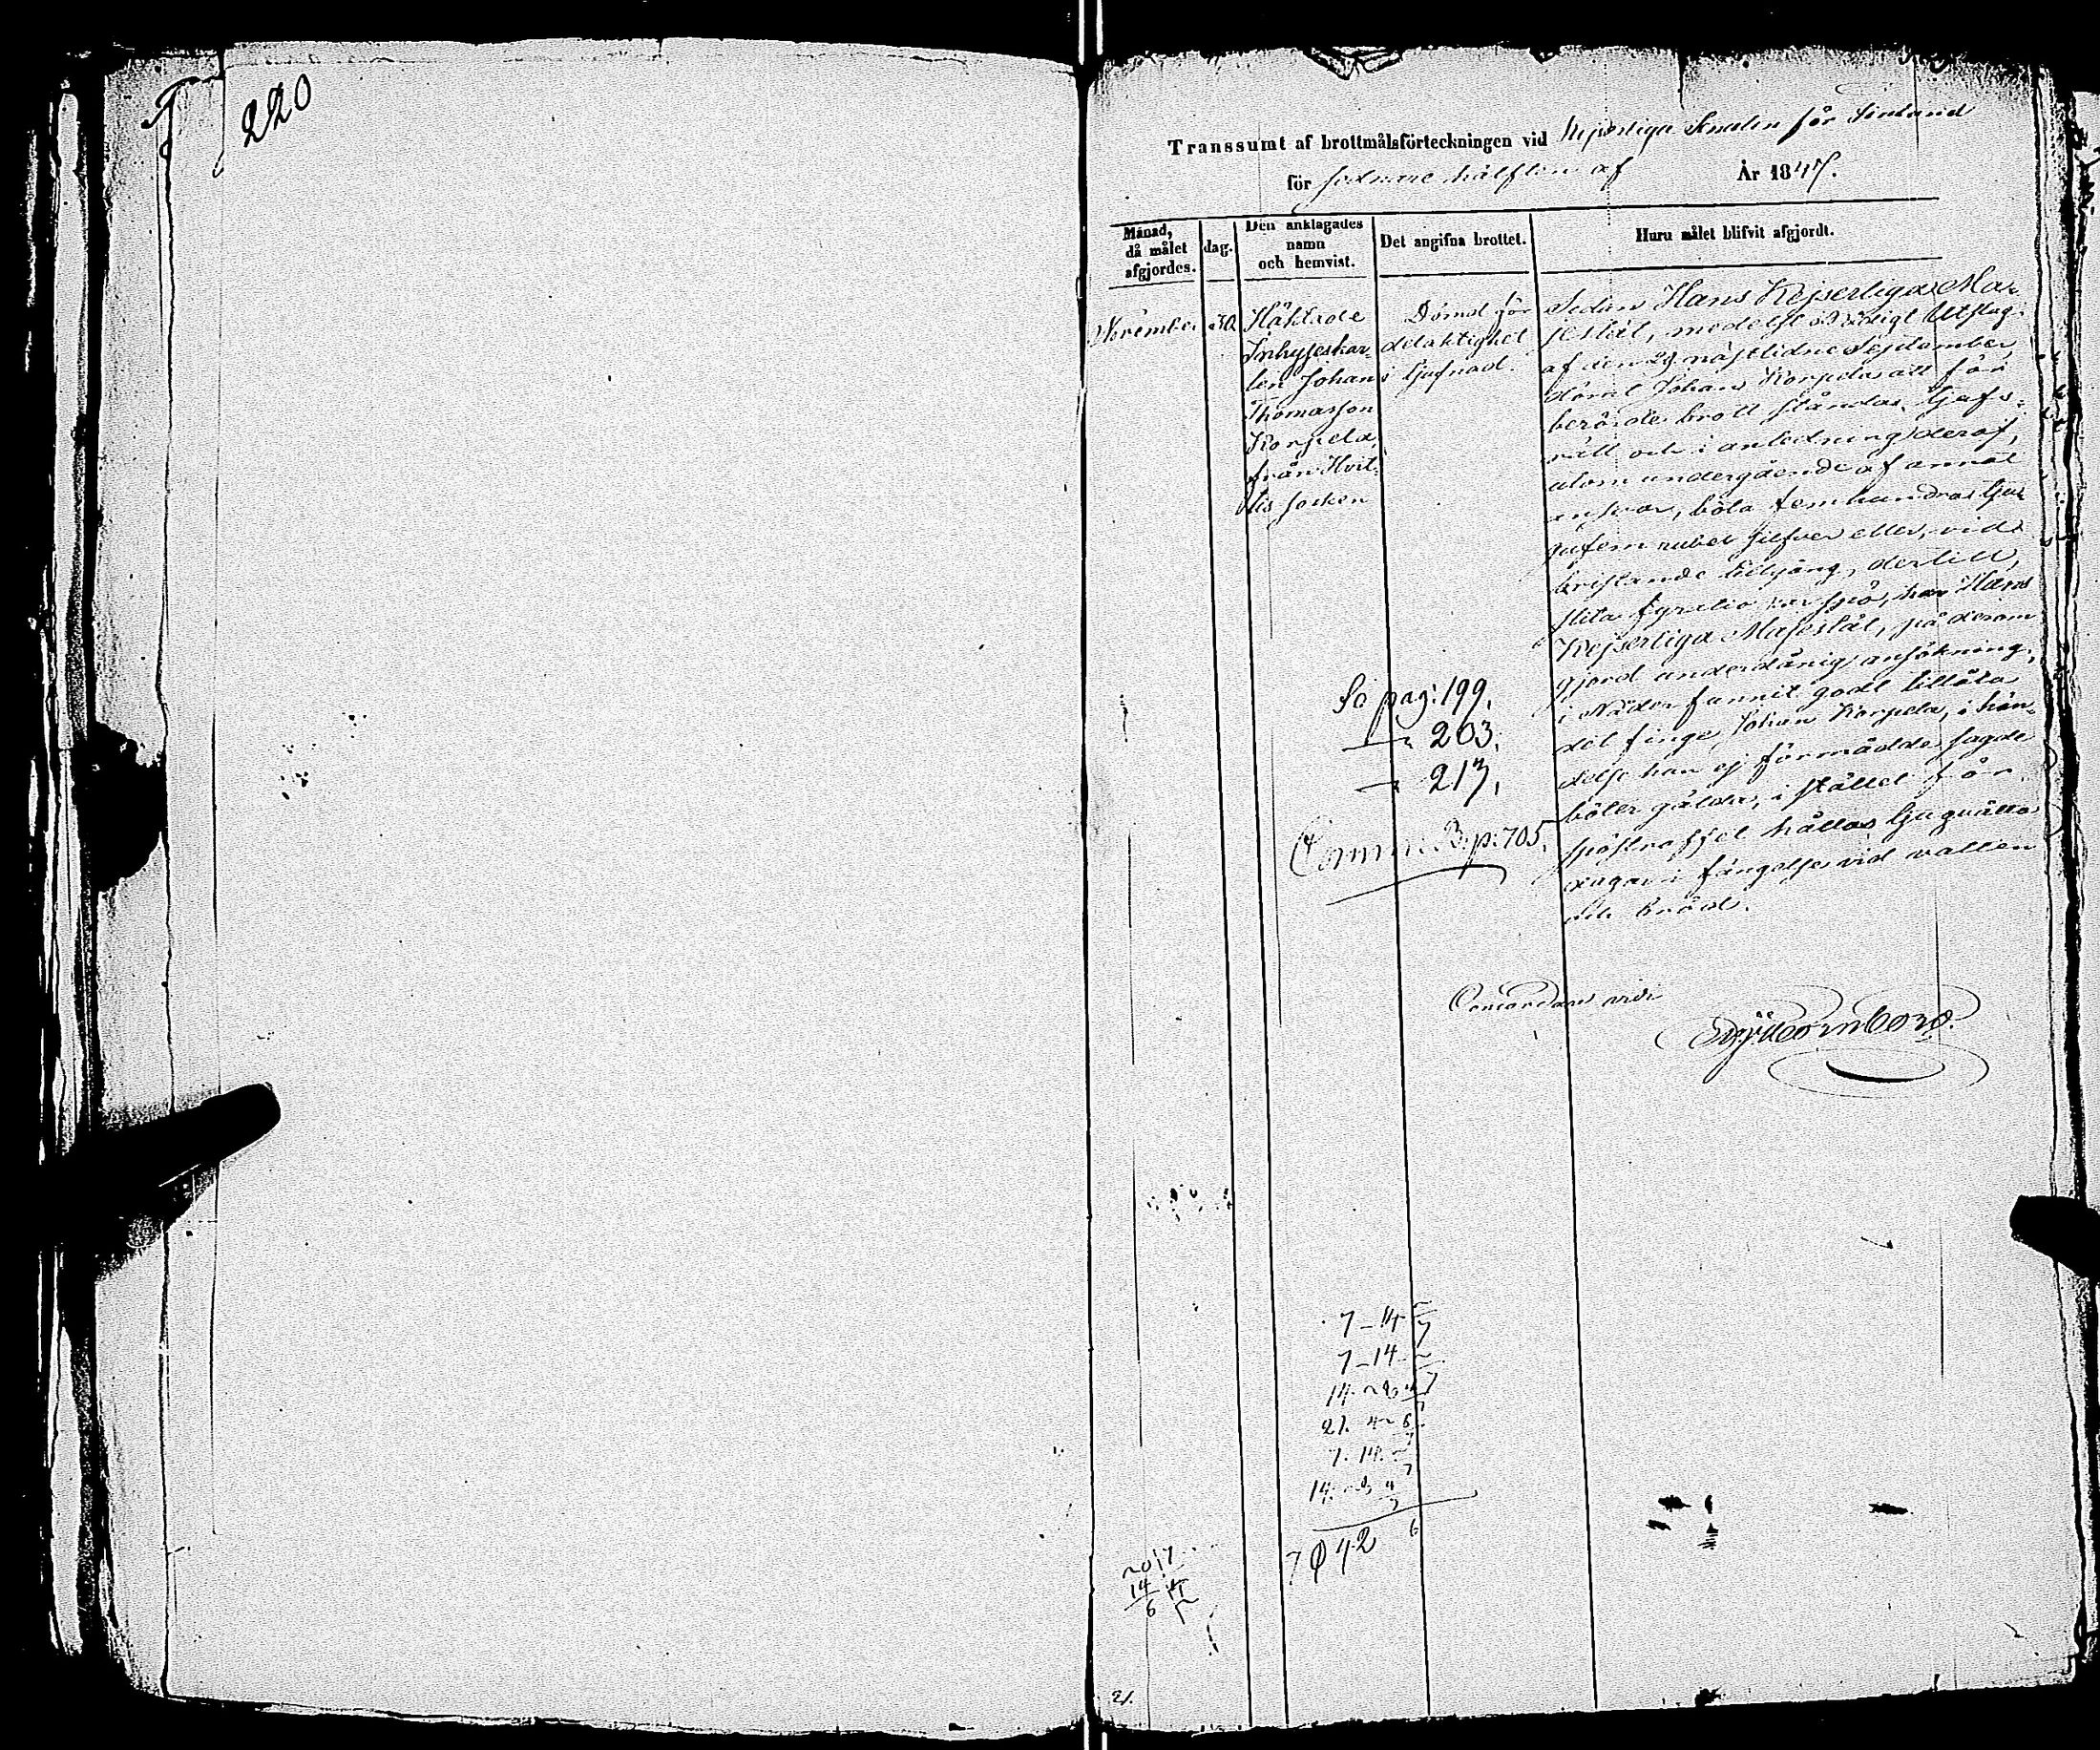 220
Transsumt af brottmålsförteckningen vid Kejserliga Senaten för Finland
för sednare hälften af År 1847.
Månad, då målet afgjordes.
dag.
Den anklagades namn och hemvist.
Det angifna brottet.
Huru målet blifvit afgjordt.
November
30
Häktade
Inhyseskar-
len Johan
Thomasson
Korpela
från Hvit-
tis socken
Dömd för
delaktighet
i tjufnad.
Sedan Hans Kejserliga Ma-
jestät, medelst Nådigt Utslag
af den 29 nästlidne September
dömt Johan Korpela att för
berörde brott ståndas tjufs-
rätt och i anledning deraf,
utom undergående af annat
ansvar, böta femhundra tju-
gufem rubel silfver eller, vid
bristande tillgång dertill,
slita fyratio par spö, har Hans
Kejserliga Majestät, på derom
gjord underdånig ansökning,
i Nåder funnit godt tillåta
det finge Johan Korpela, i hän-
delse han ej förmådde sagde
böter gälda, i stället för
spöstraffet hållas tjuguåtta
dagar i fängelse vid vatten
och bröd.
So pag: 199.
203.
217.
B. p: 705.
Concordans vidi
7-14
7-14
14
21.
7. 14.
14.
6
42
20 17
14
6
21.